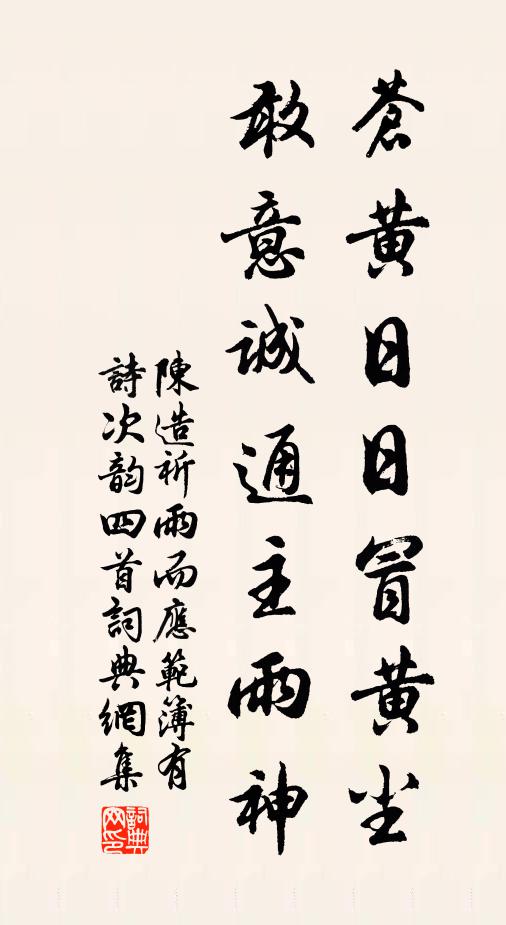 蒼黃日日冒黃尘
敢意誠通主雨神
陳造祈雨而應範簿有
詩次韵四首詞典網集
詞典网印